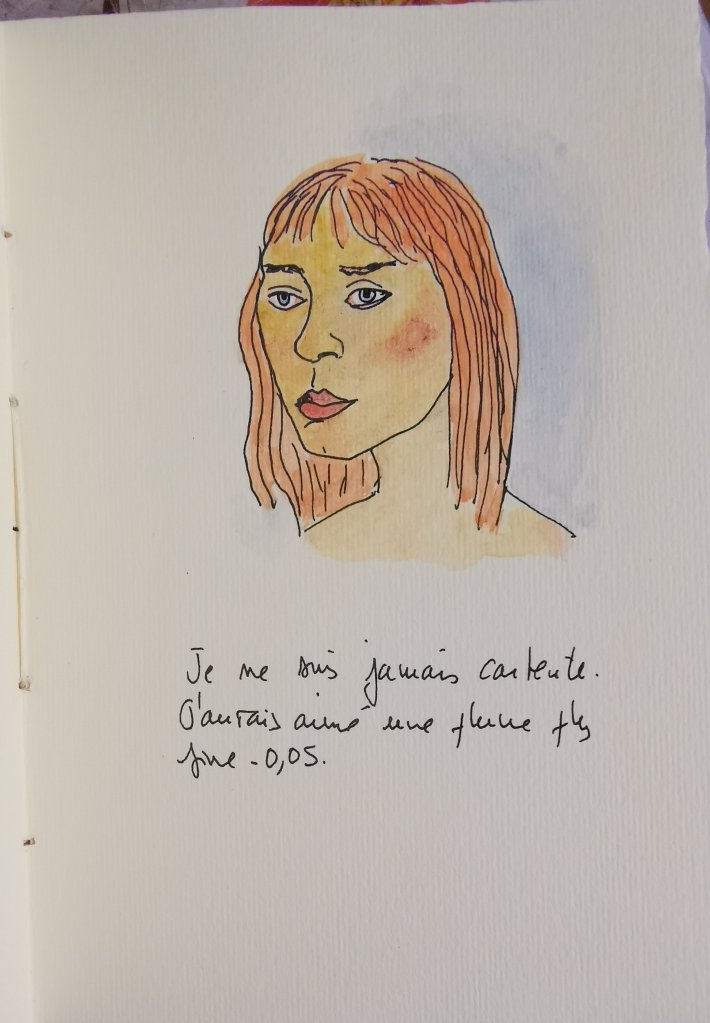 Je ne suis jamais contente.
J'aurais aimé une plume plus
fine - 0,05.